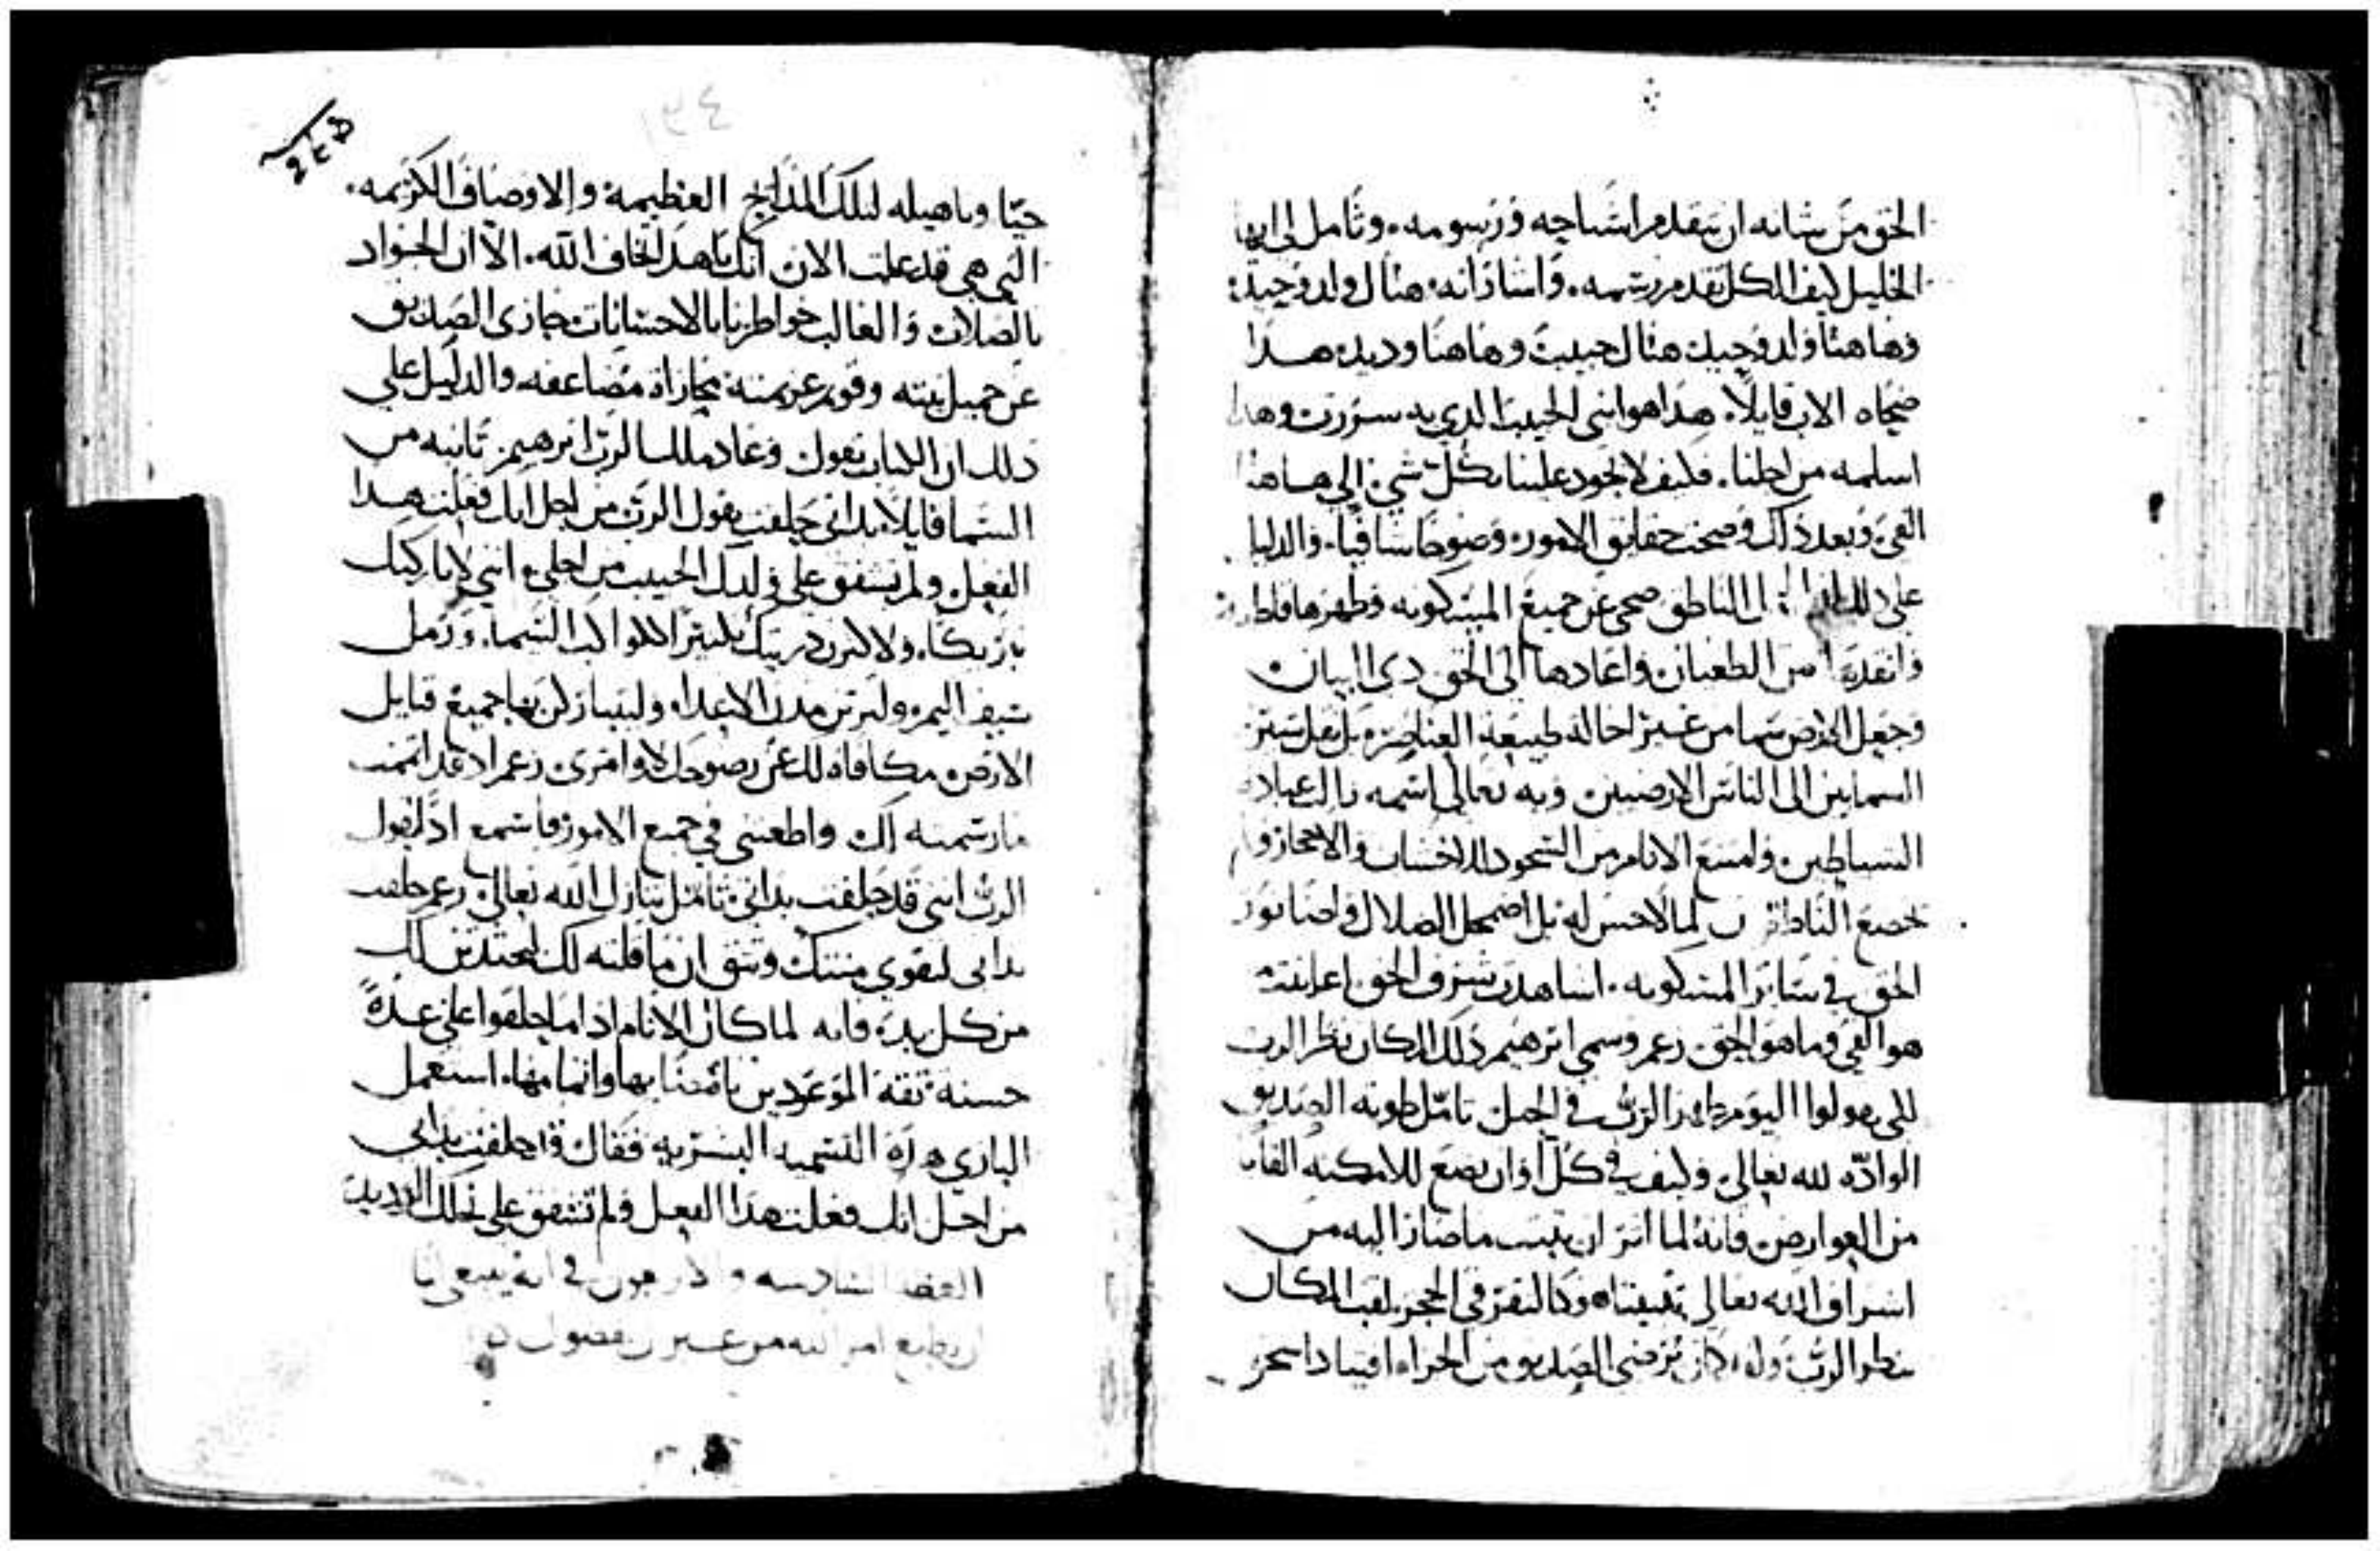 الحق من شانه ان يتقدم اشباحه ورسومه. وتامل لي ايها
الخليل كيف الكل تقدم رسمه. واشاراته. هنال ولد وحيد.
وهاهنا ولد وحيد هنال حبيب وهاهنا وديد. هدا
ضحاه الاب قايلاً. هدا هو ابني الحبيب الدي به سررت وهدا
اسلمه من اجلنا. فكيف لا يجود علينا بكل شي. الي هاهنا
الفي. وبعد ذاك وضحت حقايق الامور. وضوحًا شافيًا. والدليل
علي دلك ان الناطق ضحي عن جميع المسكونه وطهرها
وانقدها من الطغيان واعادها الي الحق دي البيان
وجعل الارض سما من غير احالة طبيعة العناصر. بل نقل ستر
السماين الي الناس الارضيين وبه تعالي اسمه بطلت عبادة
الشياطين. وامتنع الانام من السجود للاخشاب والاحجار ولم
خضع الناطقون لما لا حس له بل اضمحل الضلال واضا نور
الحق في ساير المسكونه. اشاهدت شرف الحق اعاينت
هو الفي وما هو الحق. زعم وسمي ابرهيم دلك المكان نظر الرب
لكي يقولوا اليوم ظهر الرب في الجبل تامل طوية الصديق
الوادّه لله تعالي. وكيف في كل اوان يضع للامكنه القابًا
من العوارض فانه لما اثر ان يثبت ما صار اليه من
اشراف الله تعالي تثبيتًا. وكالنقر في الحجر. لقب المكان
نظر الرب. وله كان ترضي الصديق من الجزاء اقتياد اسحق
حيًا وتاهيله لتلك المدايح العظيمة والاوصاف الكريمه.
التي هي قد علمت الان انك يا هدا تخاف الله. الا ان الجواد
بالصلات والغالب خواطرنا بالاحسانات جازي الصديق
عن جميل نيته وقويم عزيمته. مجازاة مضاعفه. والدليل علي
دلك ان الكتاب يقول وعاد ملاك الرب ابرهيم. ثانيه من
السما قايلاً بداتي حلفت يقول الرب من اجل انك فعلت هدا
الفعل. ولم تشفق علي ولدك الحبيب من اجلي. انني لاباركنك
بازيكا. ولاكثرن دريتك كثيرًا كلواكب السما. ورمل
سيف اليم. وليرثن مدن الاعداء. وليتباركن بها جميع قبايل
الارض. مكافاة لك عن رضوخك لاوامري. زعم اد قد اتممت
مارسمته لك واطعتني في جميع الامور فاسمع ادا يقول
الرب انني قد حلفت بداتي. تامل تنازل الله تعالي. زعم حلفت
بداتي لتقوي منتك وتثق ان ما قلته لك
من كل بد. فانه لما كان الانام ادا ما حلفوا علي عدةٍ
حسنه. ثقة الموعودين باقتنايها واتمامها. استعمل
الباري هده التسميه البشريه فقال قد حلفت بداتي
من اجل انك فعلت هدا الفعل ولم تشفق علي نجلك الوديد
العظه السادسه والاربعون في انه ينبغي لنا
ان نطيع امر الله من غير فضول